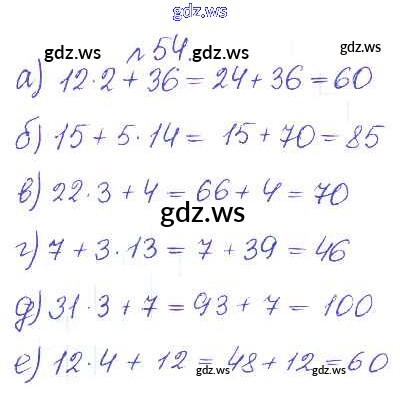 gdz.ws
gdz.ws № 54. gdz.ws
а) 12·2 + 36 = 24 + 36 = 60
б) 15 + 5·14 = 15 + 70 = 85
в) 22·3 + 4 = 66 + 4 = 70
gdz.ws
г) 7 + 3·13 = 7 + 39 = 46
д) 31·3 + 7 = 93 + 7 = 100
е) 12·4 + 12 = 48 + 12 = 60
gdz.ws gdz.ws